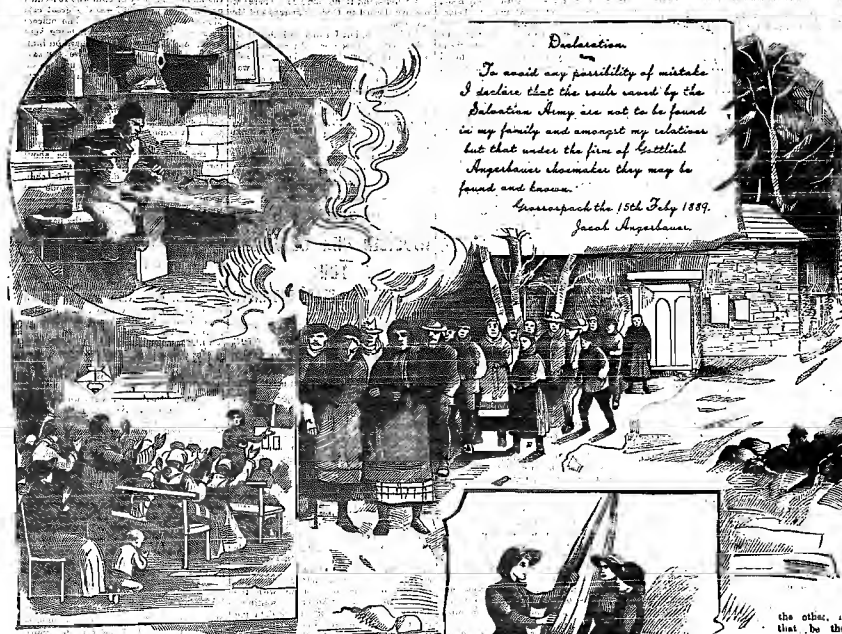 Declaration.
To avoid any possibility of mistake
I declare that the souls saved by the
Salvation Army are not to be found
in my family and amongst my relatives
but that under the firm of Gottlieb
Angerbauer shoemaker they may be
found and known.
Grossospach the 15th Feby 1889.
Jacob Angerbauer.
the other,
that be the